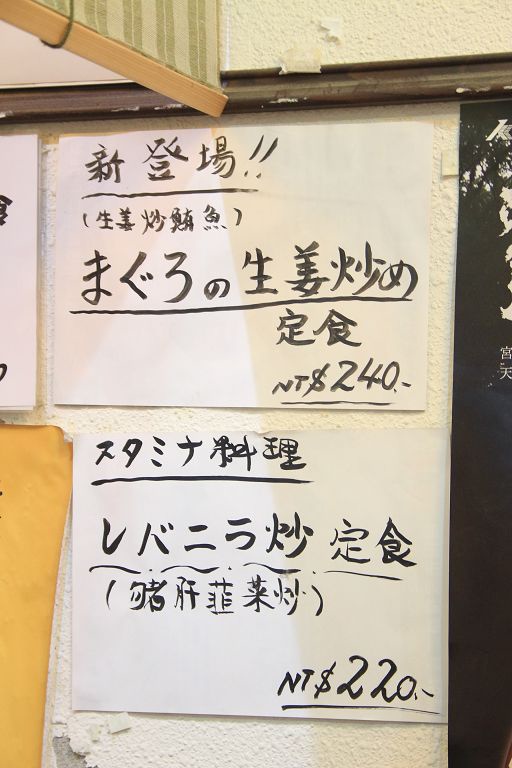 新登場!!
(生姜炒鮪魚)
まぐろの生姜炒め
定食
NT$240.-
スタミナ料理
レバニラ炒定食
(豬肝韮菜炒)
NT$220.-
食
宮
天